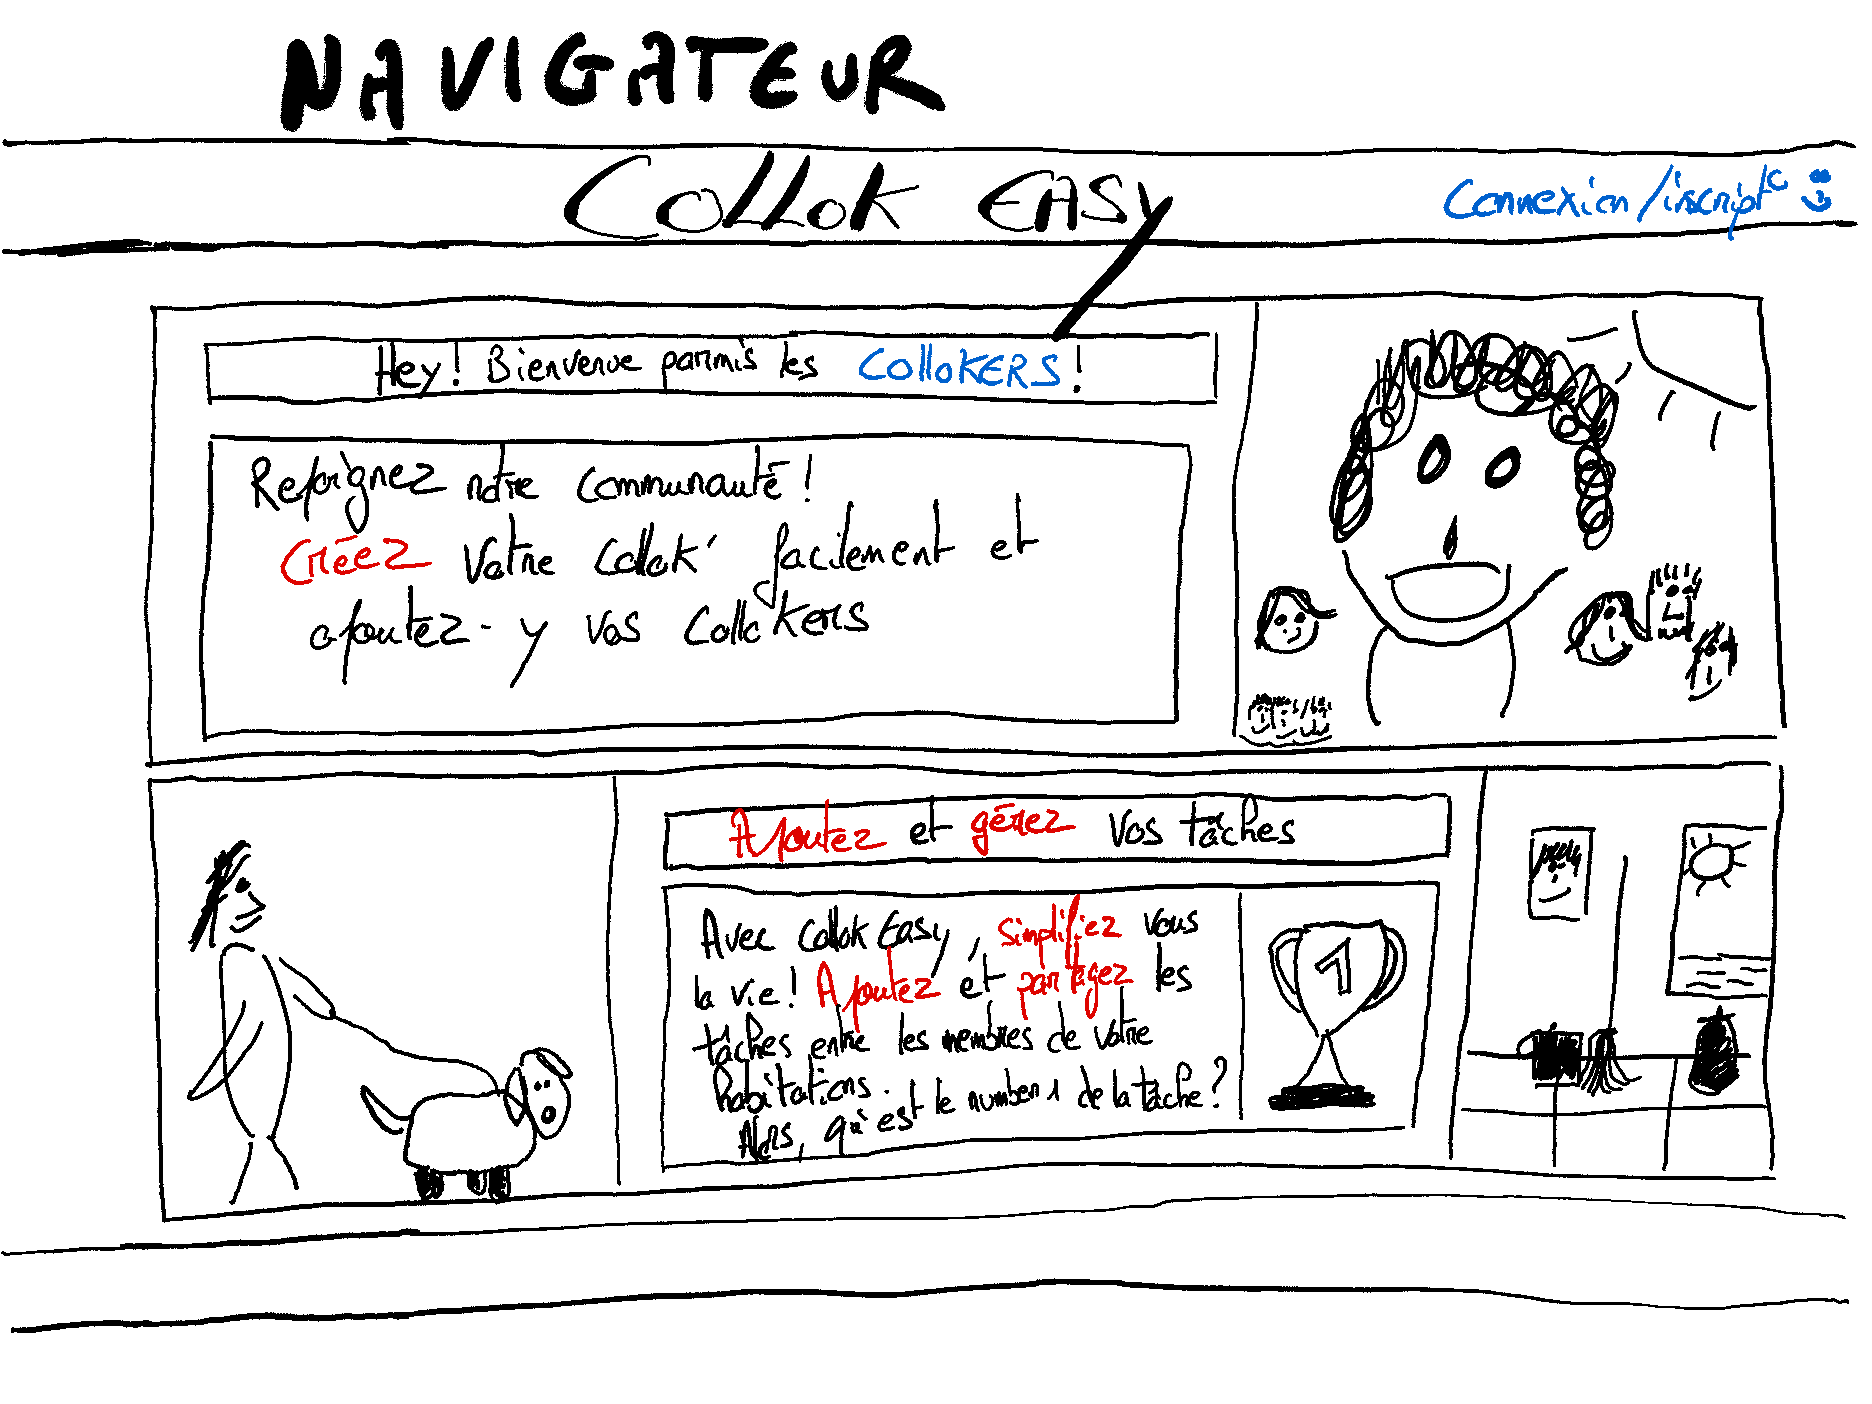 NAVIGATEUR
Collok EASY
Connexion/inscript° :)
Hey! Bienvenue parmis les COlloKERS !
Rejoignez notre communauté !
Créez votre Collok' facilement et
ajoutez-y vos ColloKers
Ajoutez et gérez vos tâches
Avec Collok Easy, simplifiez vous
la vie ! Ajoutez et partagez les
tâches entre les membres de votre
habitations.
Alors, qui est le number 1 de la tâche ?
1